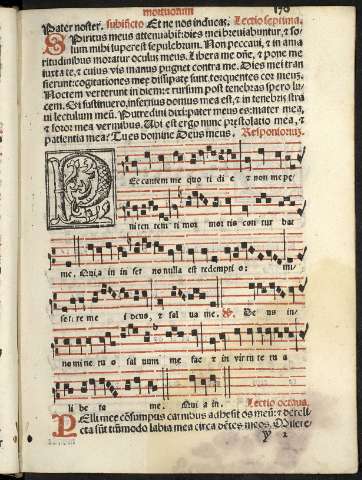 mortuorum 178
Pater noster. subinfero Et ne nos inducas. Lectio septima.
Spiritus meus attenuabit: dies mei breuiabuntur, & so/
lum mihi superest sepulchrum. Non peccaui, & in ama
ritudinibus moratur oculus meus. Libera me dñe, & pone me
iuxta te, & cuius vis manus pugnet contra me. Dies mei tran
sierunt: cogitationes meę dissipatę sunt torquentes cor meum.
Noctem verterunt in diem: & rursum post tenebras spero lu/
cem. Si sustinuero, infernus domus mea est, & in tenebris straui
ui lectulum meū. Putredini dixi pater meus es: mater mea,
& soror mea vermibus. Ubi est ergo nunc pręstolatio mea, &
patientia mea? Tu es domine Deus meus. Responsorium.
P Ec cantem me quo ti di e & non me pę
ni ten tem ti mor mor tis con tur bat
me. Quia in in fer no nulla est redempti o: mi/
sere re me i deus, & sal ua me. ℣. De us in
no mine tu o sal uum me fac & in vir tu te tu a
li be ra me. Quia in. Lectio octaua.
Pelli meę cōsumptis carnibus adhesit os meū: & dereli
cta sūt tūmodo labia mea circa dētes meos. Misere
y 2